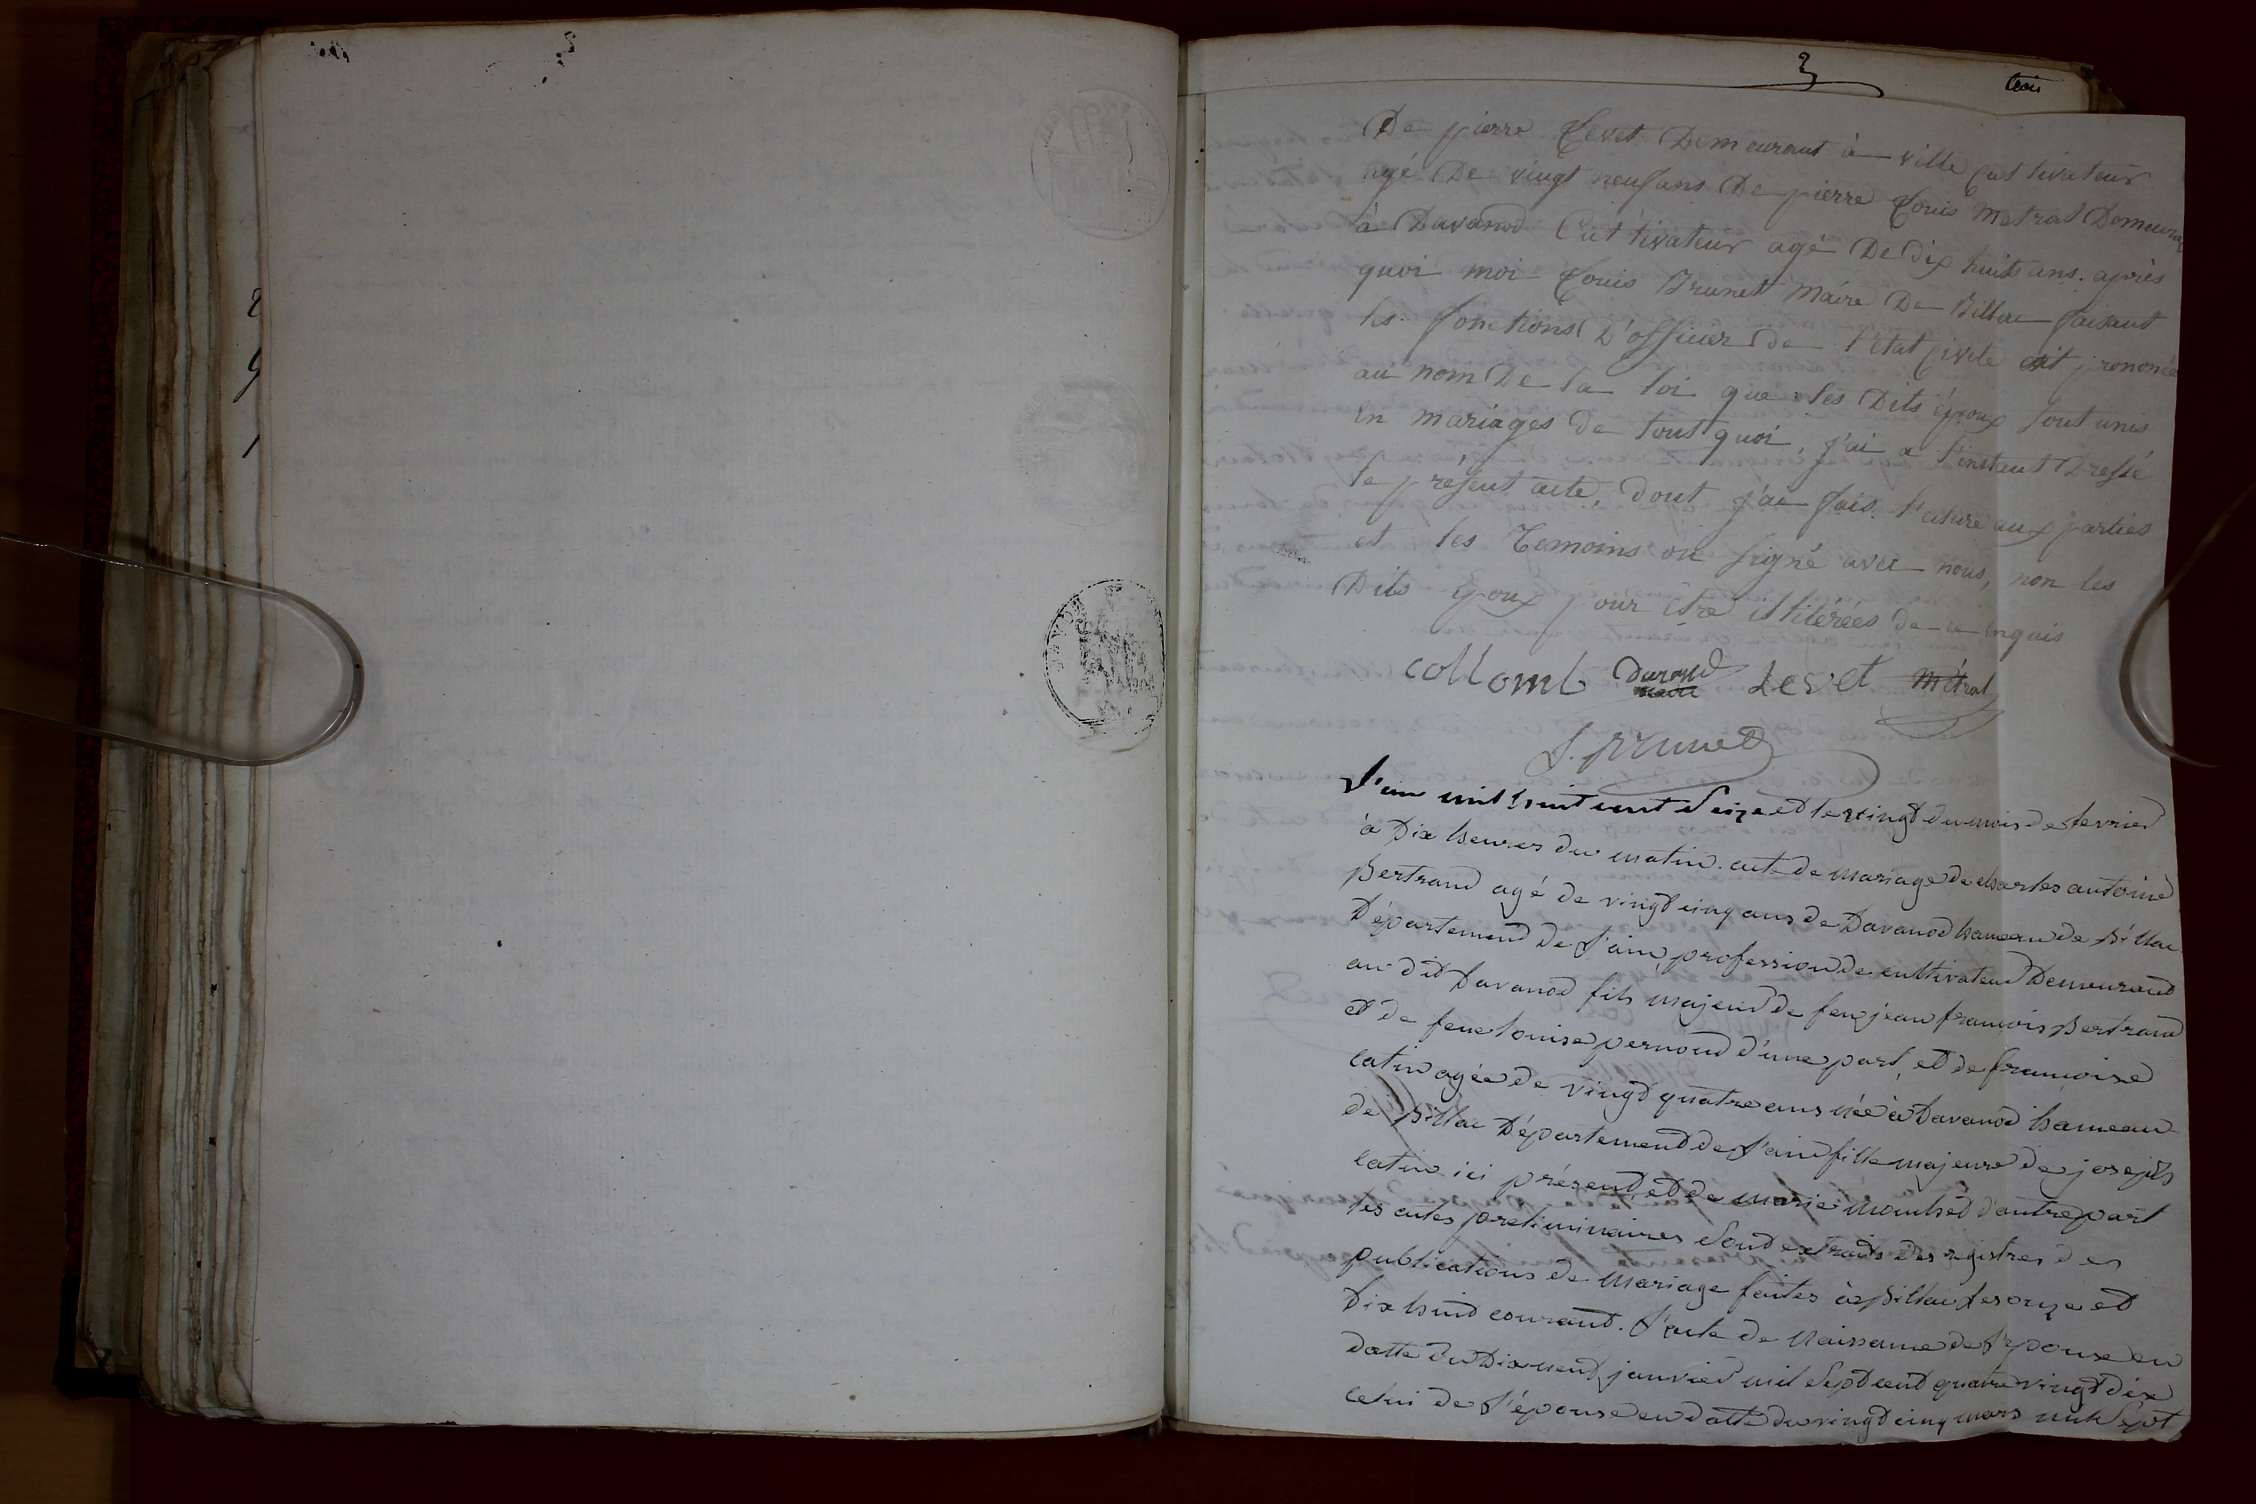 3
trois
De pierre Levet Demeurant à ville Cultivateur
agé De vingt neuf ans De pierre Louis metral Demeurant
à Davanod Cultivateur agé De Dix huit ans. après
quoi moi Louis Brunet Maire De Billiac faisant
les fonctions D'officier de l'état Civile ait prononcé
au nom De la loi que les Dits époux sont unis
en mariages de tout quoi, j'ai a l'instant Dressé
le présent acte, dont j'ai fais lecture aux parties
et les Temoins on signé avec nous, non les
Dits Epoux pour être illitérées de ce enquis
collomb Durand Levet Métral
L. Brunet
L'an mil huit cent Seize et le vingt du mois de fevrier
à Dix heures du matin. acte de mariage de charles antoine
Bertrand agé de vingt cinq ans de Davanod hameau de Billiac
Département de l'ain, profession de cultivateur Demeurant
au dit Davanod fils majeur de feu jean francois Bertrand
et de feue louise pernoud d'une part, et de francoise
catin agée de vingt quatre ans née à Davanod hameau
de Billiac Département de l'ain fille majeure de joseph
catin ici présent, et de marie d'autre part
les actes preliminaires Sont extraits des registres des
publications de mariage faites à Billiac les onze et
Dix huit courant. L'acte de Naissance de l'epoux en
datte du Dix neuf janvier mil Sept cent quatre vingt dix
celui de l'épouse en datte du vingt cinq mars mil Sept